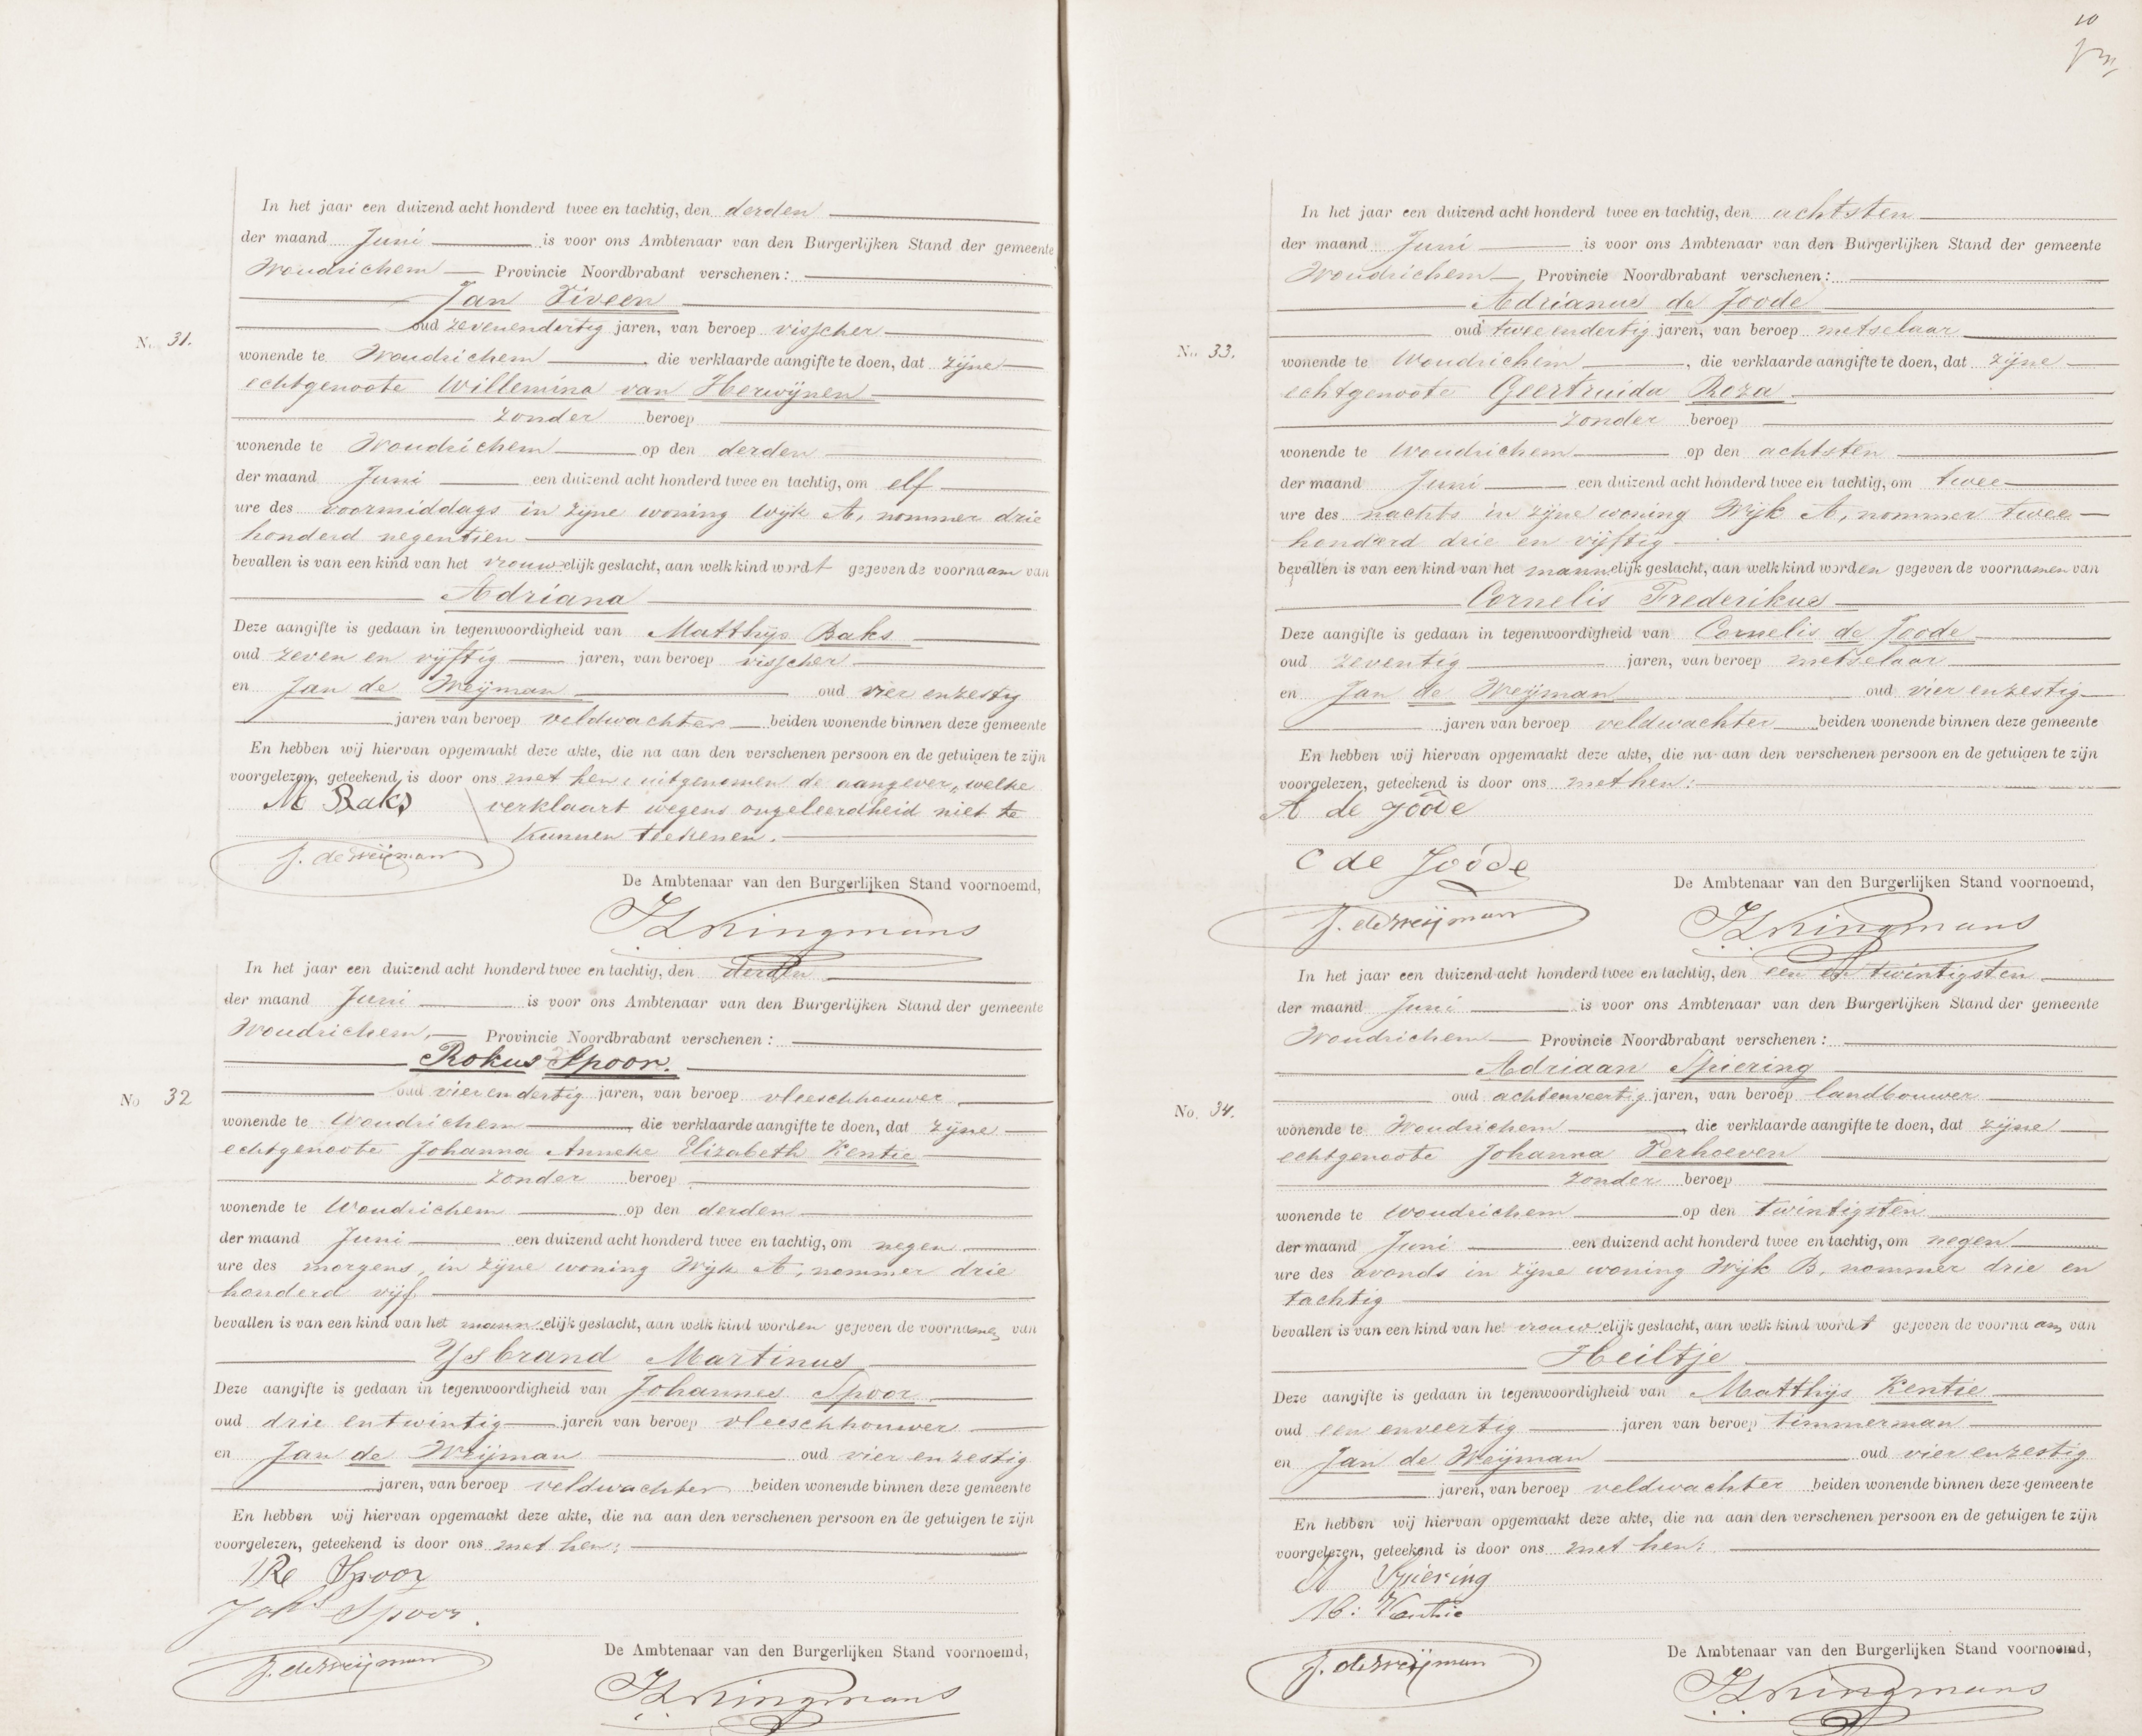 In het jaar een duizend acht honderd twee en tachtig, den derden
der maand Juni is voor ons Ambtenaar van den Burgerlijken Stand der gemeente
Woudrichem Provincie Noordbrabant verschenen:
Jan Viveen
oud zevenendertig jaren, van beroep visscher
No. 31.
wonende te Woudrichem, die verklaarde aangifte te doen, dat zijne
echtgenoote Willemina van Herwijnen
zonder beroep
wonende te Woudrichem op den derden
der maand Juni een duizend acht honderd twee en tachtig, om elf
ure des voormiddags in zijne woning Wijk A, nommer drie
honderd negentien
bevallen is van een kind van het vrouwelijk geslacht, aan welk kind wordt gegeven de voornaam van
Adriana
Deze aangifte is gedaan in tegenwoordigheid van Matthijs Baks
oud zeven en vijftig jaren, van beroep visscher
en Jan de Weijman oud vier enzestig
jaren van beroep veldwachter beiden wonende binnen deze gemeente
En hebben wij hiervan opgemaakt deze akte, die na aan den verschenen persoon en de getuigen te zijn
voorgelezen, geteekend is door ons met hen, uitgenomen de aangever, welke
M Baks verklaart wegens ongeleerdheid niet te
kunnen teekenen.
J. de Weijman
De Ambtenaar van den Burgerlijken Stand voornoemd,
Kingmans
In het jaar een duizend acht honderd twee en tachtig, den derden
der maand Juni is voor ons Ambtenaar van den Burgerlijken Stand der gemeente
Woudrichem, Provincie Noordbrabant verschenen:
Rokus Spoor.
oud vierendertig jaren, van beroep vleeschhouwer
No 32
wonende te Woudrichem, die verklaarde aangifte te doen, dat zijne
echtgenoote Johanna Anneke Elizabeth Kentie
zonder beroep
wonende te Woudrichem op den derden
der maand Juni een duizend acht honderd twee en tachtig, om negen
ure des morgens, in zijne woning Wijk A, nommer drie
honderd vijf
bevallen is van een kind van het mannelijk geslacht, aan welk kind worden gegeven de voornamen van
Ysbrand Martinus
Deze aangifte is gedaan in tegenwoordigheid van Johannes Spoor
oud drie entwintig jaren van beroep vleeschhouwer
en Jan de Weijman oud vier enzestig
jaren, van beroep veldwachter beiden wonende binnen deze gemeente
En hebben wij hiervan opgemaakt deze akte, die na aan den verschenen persoon en de getuigen te zijn
voorgelezen, geteekend is door ons met hen:
Rs Spoor
Johs Spoor.
J. de Weijman
De Ambtenaar van den Burgerlijken Stand voornoemd,
Kingmans
10
In het jaar een duizend acht honderd twee en tachtig, den achtsten
der maand Juni is voor ons Ambtenaar van den Burgerlijken Stand der gemeente
Woudrichem, Provincie Noordbrabant verschenen:
Adrianus de Joode
oud twee endertig jaren, van beroep metselaar
No. 33.
wonende te Woudrichem, die verklaarde aangifte te doen, dat zijne
echtgenoote Geertruida Roza
zonder beroep
wonende te Woudrichem op den achtsten
der maand Juni een duizend acht honderd twee en tachtig, om twee
ure des nachts in zijne woning Wijk A, nommer twee
honderd drie en vijftig
bevallen is van een kind van het mannelijk geslacht, aan welk kind worden gegeven de voornamen van
Cornelis Frederikus
Deze aangifte is gedaan in tegenwoordigheid van Cornelis de Joode
oud zeventig jaren, van beroep metselaar
en Jan de Weijman oud vier enzestig
jaren van beroep veldwachter beiden wonende binnen deze gemeente
En hebben wij hiervan opgemaakt deze akte, die na aan den verschenen persoon en de getuigen te zijn
voorgelezen, geteekend is door ons met hen:
A de Joode
C de Joode
J. de Weijman
De Ambtenaar van den Burgerlijken Stand voornoemd,
Kingmans
In het jaar een duizend acht honderd twee en tachtig, den een en twintigsten
der maand Juni is voor ons Ambtenaar van den Burgerlijken Stand der gemeente
Woudrichem Provincie Noordbrabant verschenen:
Adriaan Spiering
oud achtenveertig jaren, van beroep landbouwer
No. 34.
wonende te Woudrichem, die verklaarde aangifte te doen, dat zijne
echtgenoote Johanna Verhoeven
zonder beroep
wonende te Woudrichem op den twintigsten
der maand Juni een duizend acht honderd twee en tachtig, om negen
ure des avonds in zijne woning Wijk B, nommer drie en
tachtig
bevallen is van een kind van het vrouwelijk geslacht, aan welk kind wordt gegeven de voornaam van
Heiltje
Deze aangifte is gedaan in tegenwoordigheid van Matthijs Kentie
oud een enveertig jaren van beroep timmerman
en Jan de Weijman oud vier enzestig
jaren, van beroep veldwachter beiden wonende binnen deze gemeente
En hebben wij hiervan opgemaakt deze akte, die na aan den verschenen persoon en de getuigen te zijn
voorgelezen, geteekend is door ons met hen:
A Spiering
M: Kentie
J. de Weijman
De Ambtenaar van den Burgerlijken Stand voornoemd,
Kingmans